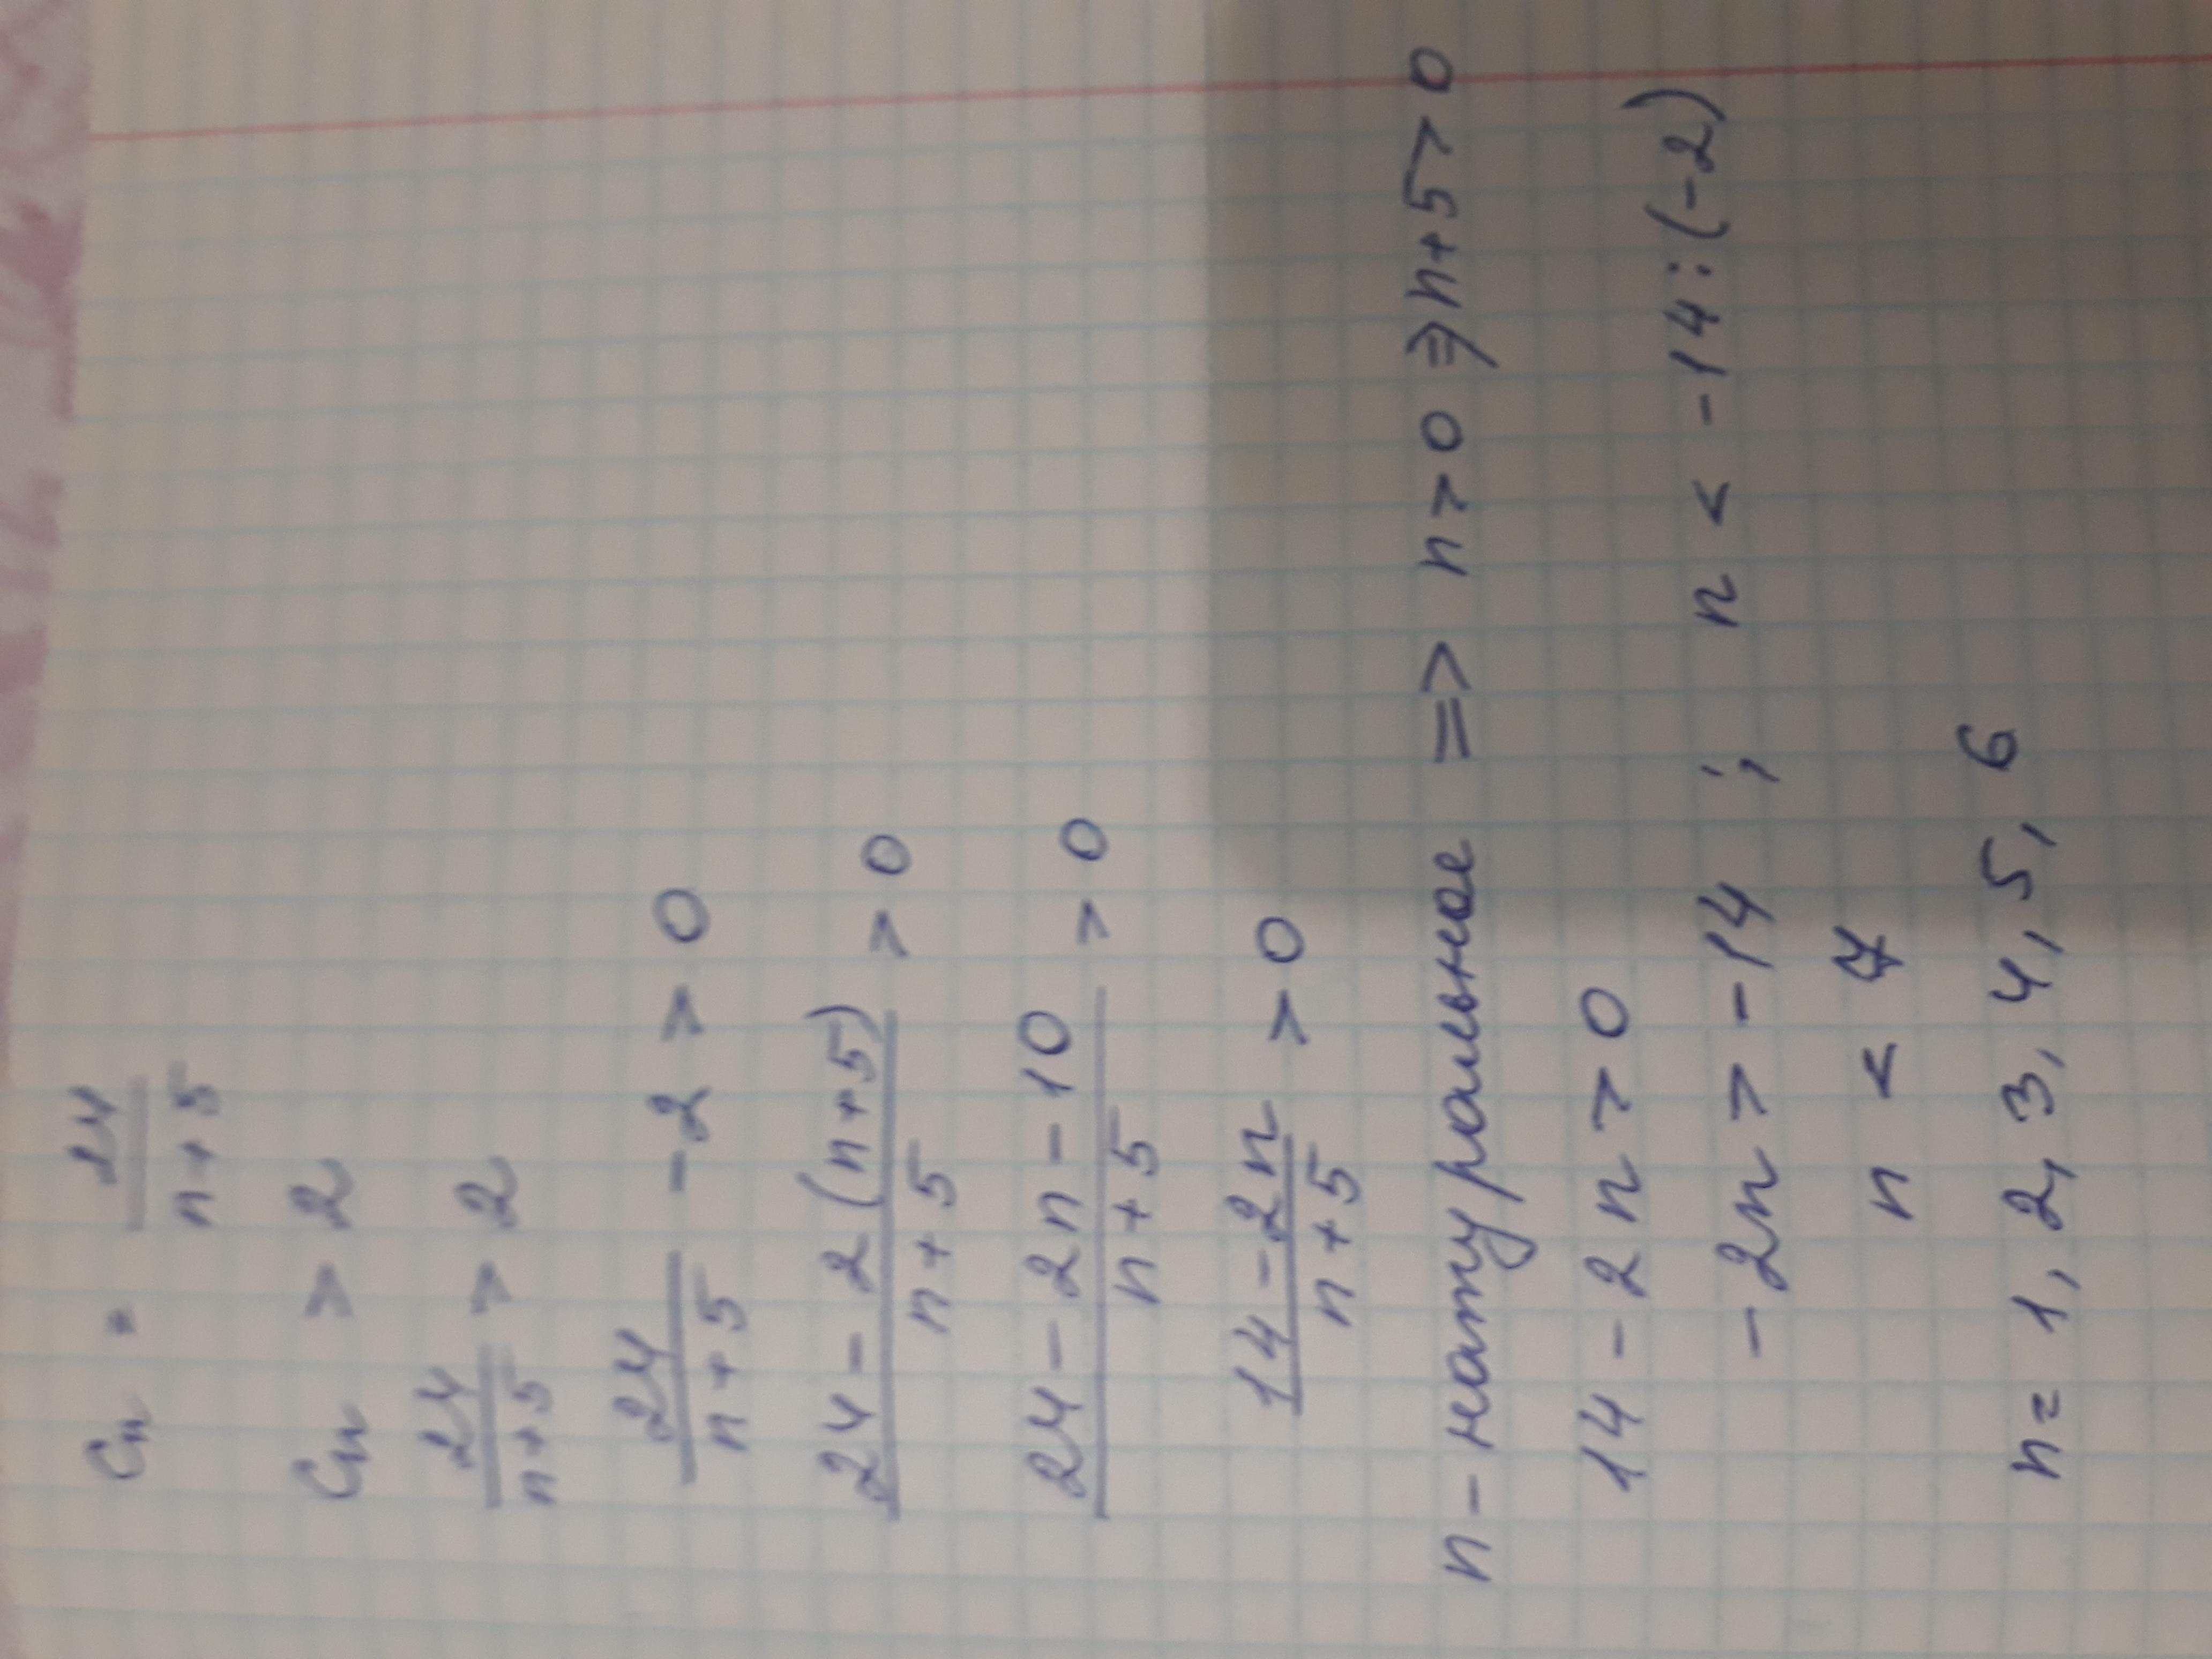 cn = 24/(n+5)
cn > 2
24/(n+5) > 2
24/(n+5) - 2 > 0
(24 - 2(n+5))/(n+5) > 0
(24 - 2n - 10)/(n+5) > 0
(14 - 2n)/(n+5) > 0
n - натуральное => n > 0 => n+5 > 0
14 - 2n > 0
-2n > -14 ; n < -14:(-2)
n < 7
n = 1, 2, 3, 4, 5, 6